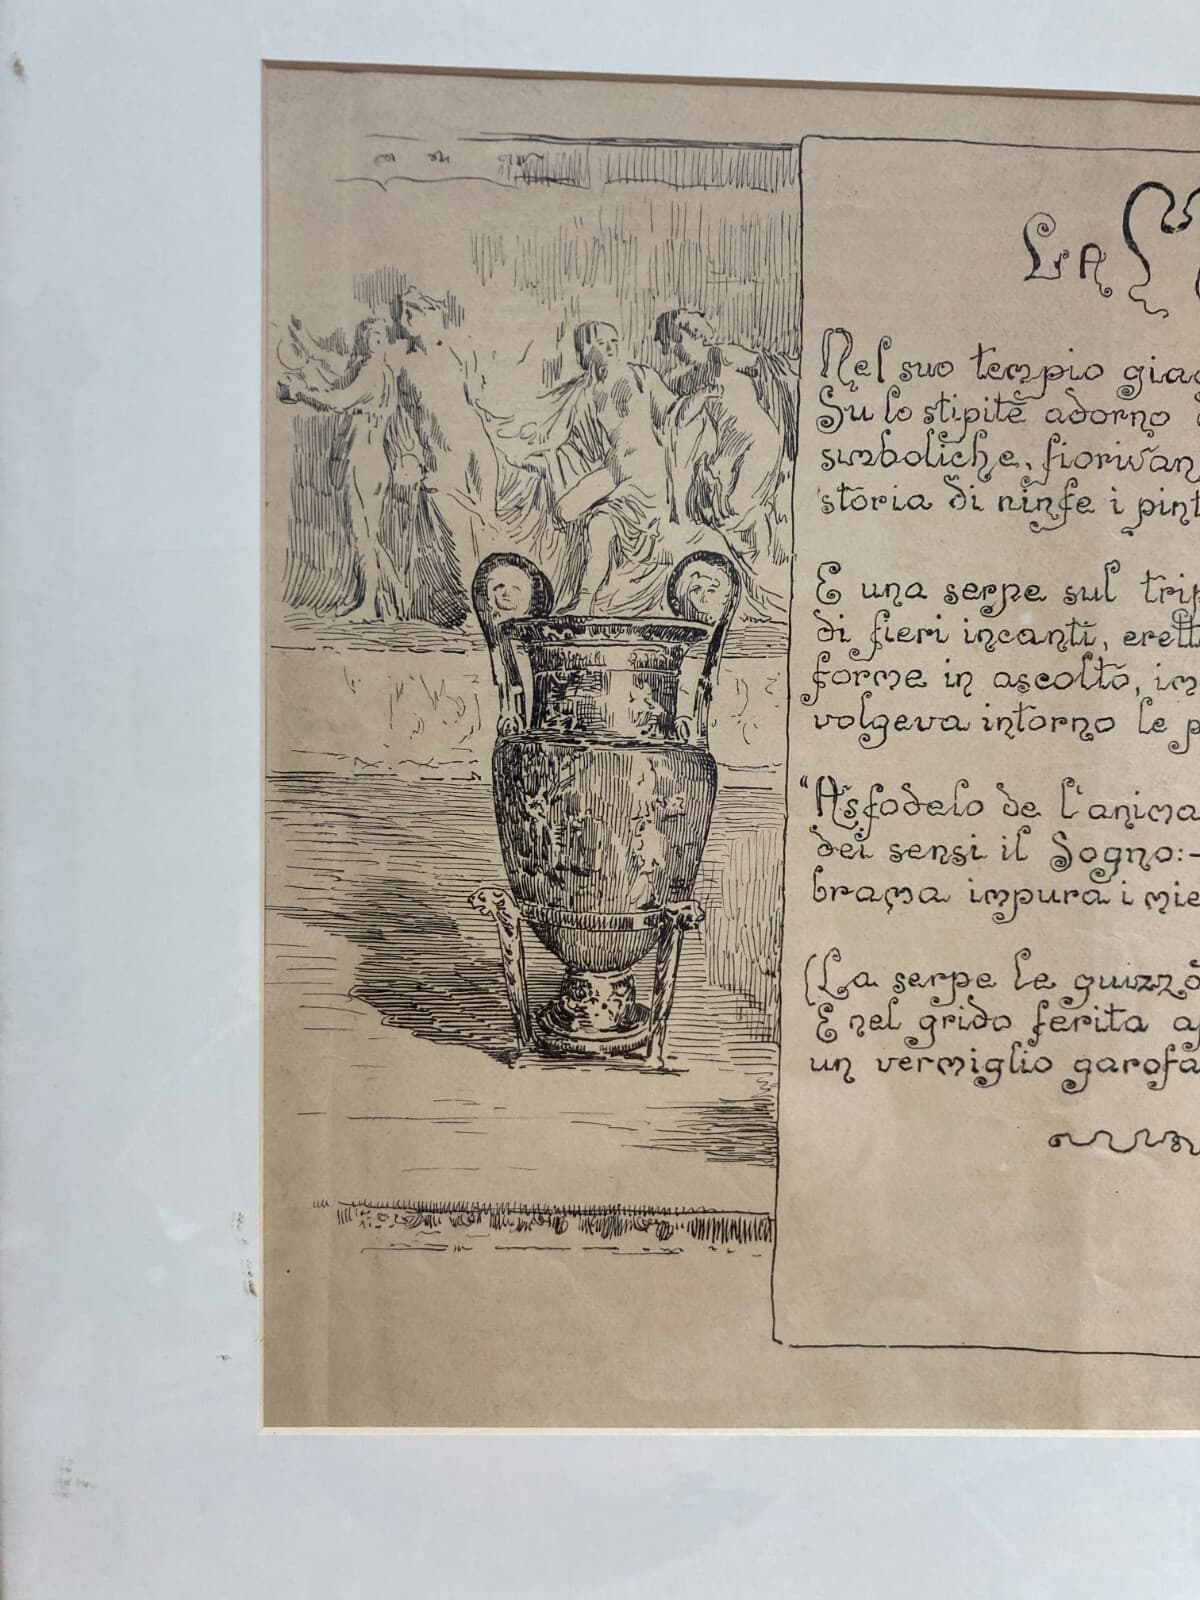 La
Nel suo tempio
Su lo stipite adorno
simboliche, fiorivan
storia di ninfe i
E una serpe sul
di fieri incanti,
forme in ascolto,
volgeva intorno le
"Asfodelo de l'anima
dei sensi il Sogno:-
brama impura i
(La serpe le guizzò
E nel grido ferita
un vermiglio